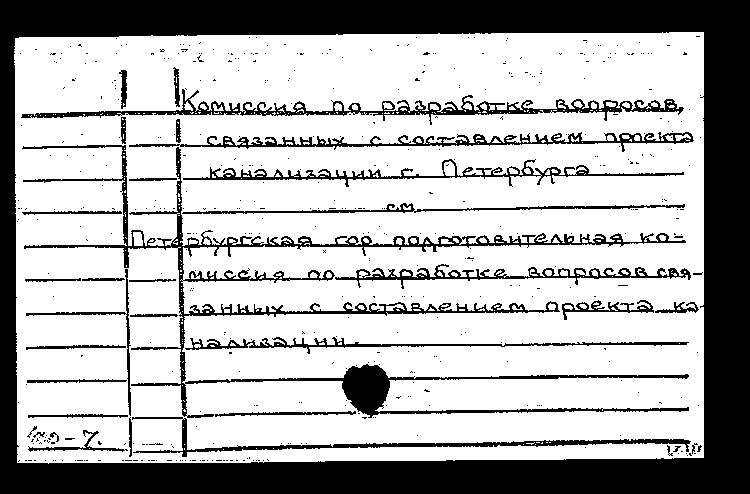 Комиссия по разработке вопросов,
связанных с составлением проекта
канализации г. Петербурга
см.
Петербургская гор подготовительная ко-
миссия по разработке вопросов свя-
занных с составлением проекта ка-
нализации.